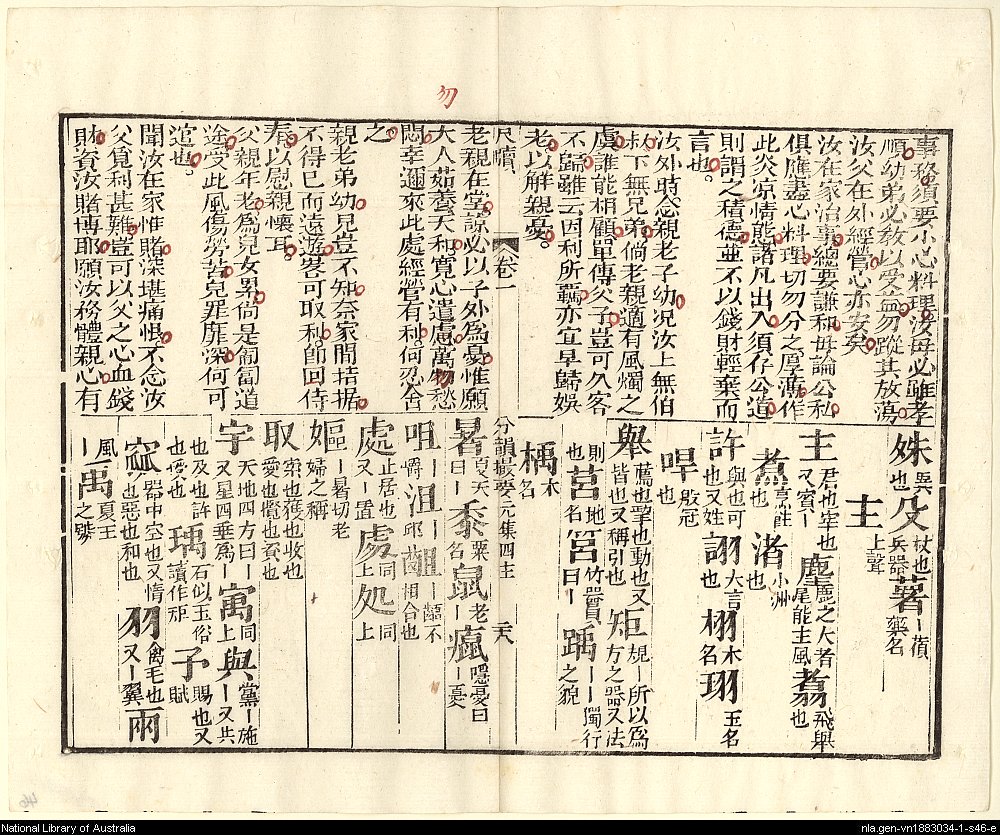 勿
事務須要小心料理汝母必雖孝
順幼弟必教以受益勿蹤其放蕩
汝父在外經營心亦安矣
汝在家治事總要謙和毋論公私
俱應盡心料理切勿分之厚薄作
此炎凉情態諸凡出入須存公道
則謂之積德並不以錢財輕棄而
言也
汝外時念親老子幼况汝上無伯
叔下無兄弟倘老親適有風燭之
虞誰能相顧單傳父子豈可久客
不歸雖云因利所羈亦宜早歸娛
老以解親憂
尺牘 卷一
老親在堂諒必以子外為憂惟願
大人茹養天和寬心遣慮萬勿愁
悶幸邇來此處經營有利何忍舍
之
親老弟幼兒豈不知奈家間拮据
不得已而遠遊豈可取利即回侍
奉以慰親懷耳
父親年老為兒女累尚是匍匐道
途受此風傷勞苦兒罪靡深何可
逭也
聞汝在家惟賭深堪痛恨不念汝
父覓利甚難豈可以父之心血錢
財資汝賭博耶願汝務體親心有
姝 異也 殳 杖也兵器 薯 ー蕷藥名
主 上聲
主 君也宰也又賓ー 麈 鹿之大者尾能生風 翥 飛舉也
煮 烹飪也 渚 小洲也
許 與也可也又姓 詡 大言也 栩 木名 珝 玉名
哻 殷冠也
舉 薦也擎也動也又皆也又稱引也 矩 規ー所以為方之器又法
則也 莒 地名 筥 竹器員曰ー 踽 ーー獨行之貌
楀 木名
分韻撮要元集四主 共
暑 夏天曰ー 黍 粟名 鼠 老ー 癙 隱憂曰ー憂
咀 ー嚼也 沮 ー郎 齟 ー齬不相合也
處 止居也又ー置 處 同上 処 同上
嫗 ー暑切老婦之稱
取 索也獲也收也愛也攬也資也
宇 天地四方曰ー又星四垂為ー 㝢 同上 與 黨ー施ー又共
也及也許也偯也 瑀 石似玉俗讀作矩 予 賜也又賦
窳 器中空也又惰也惡也和也 羽 禽毛也又ー翼 雨
風ー 禹 夏王之號
National Library of Australia
nla.gen-vn1883034-1-s46-e